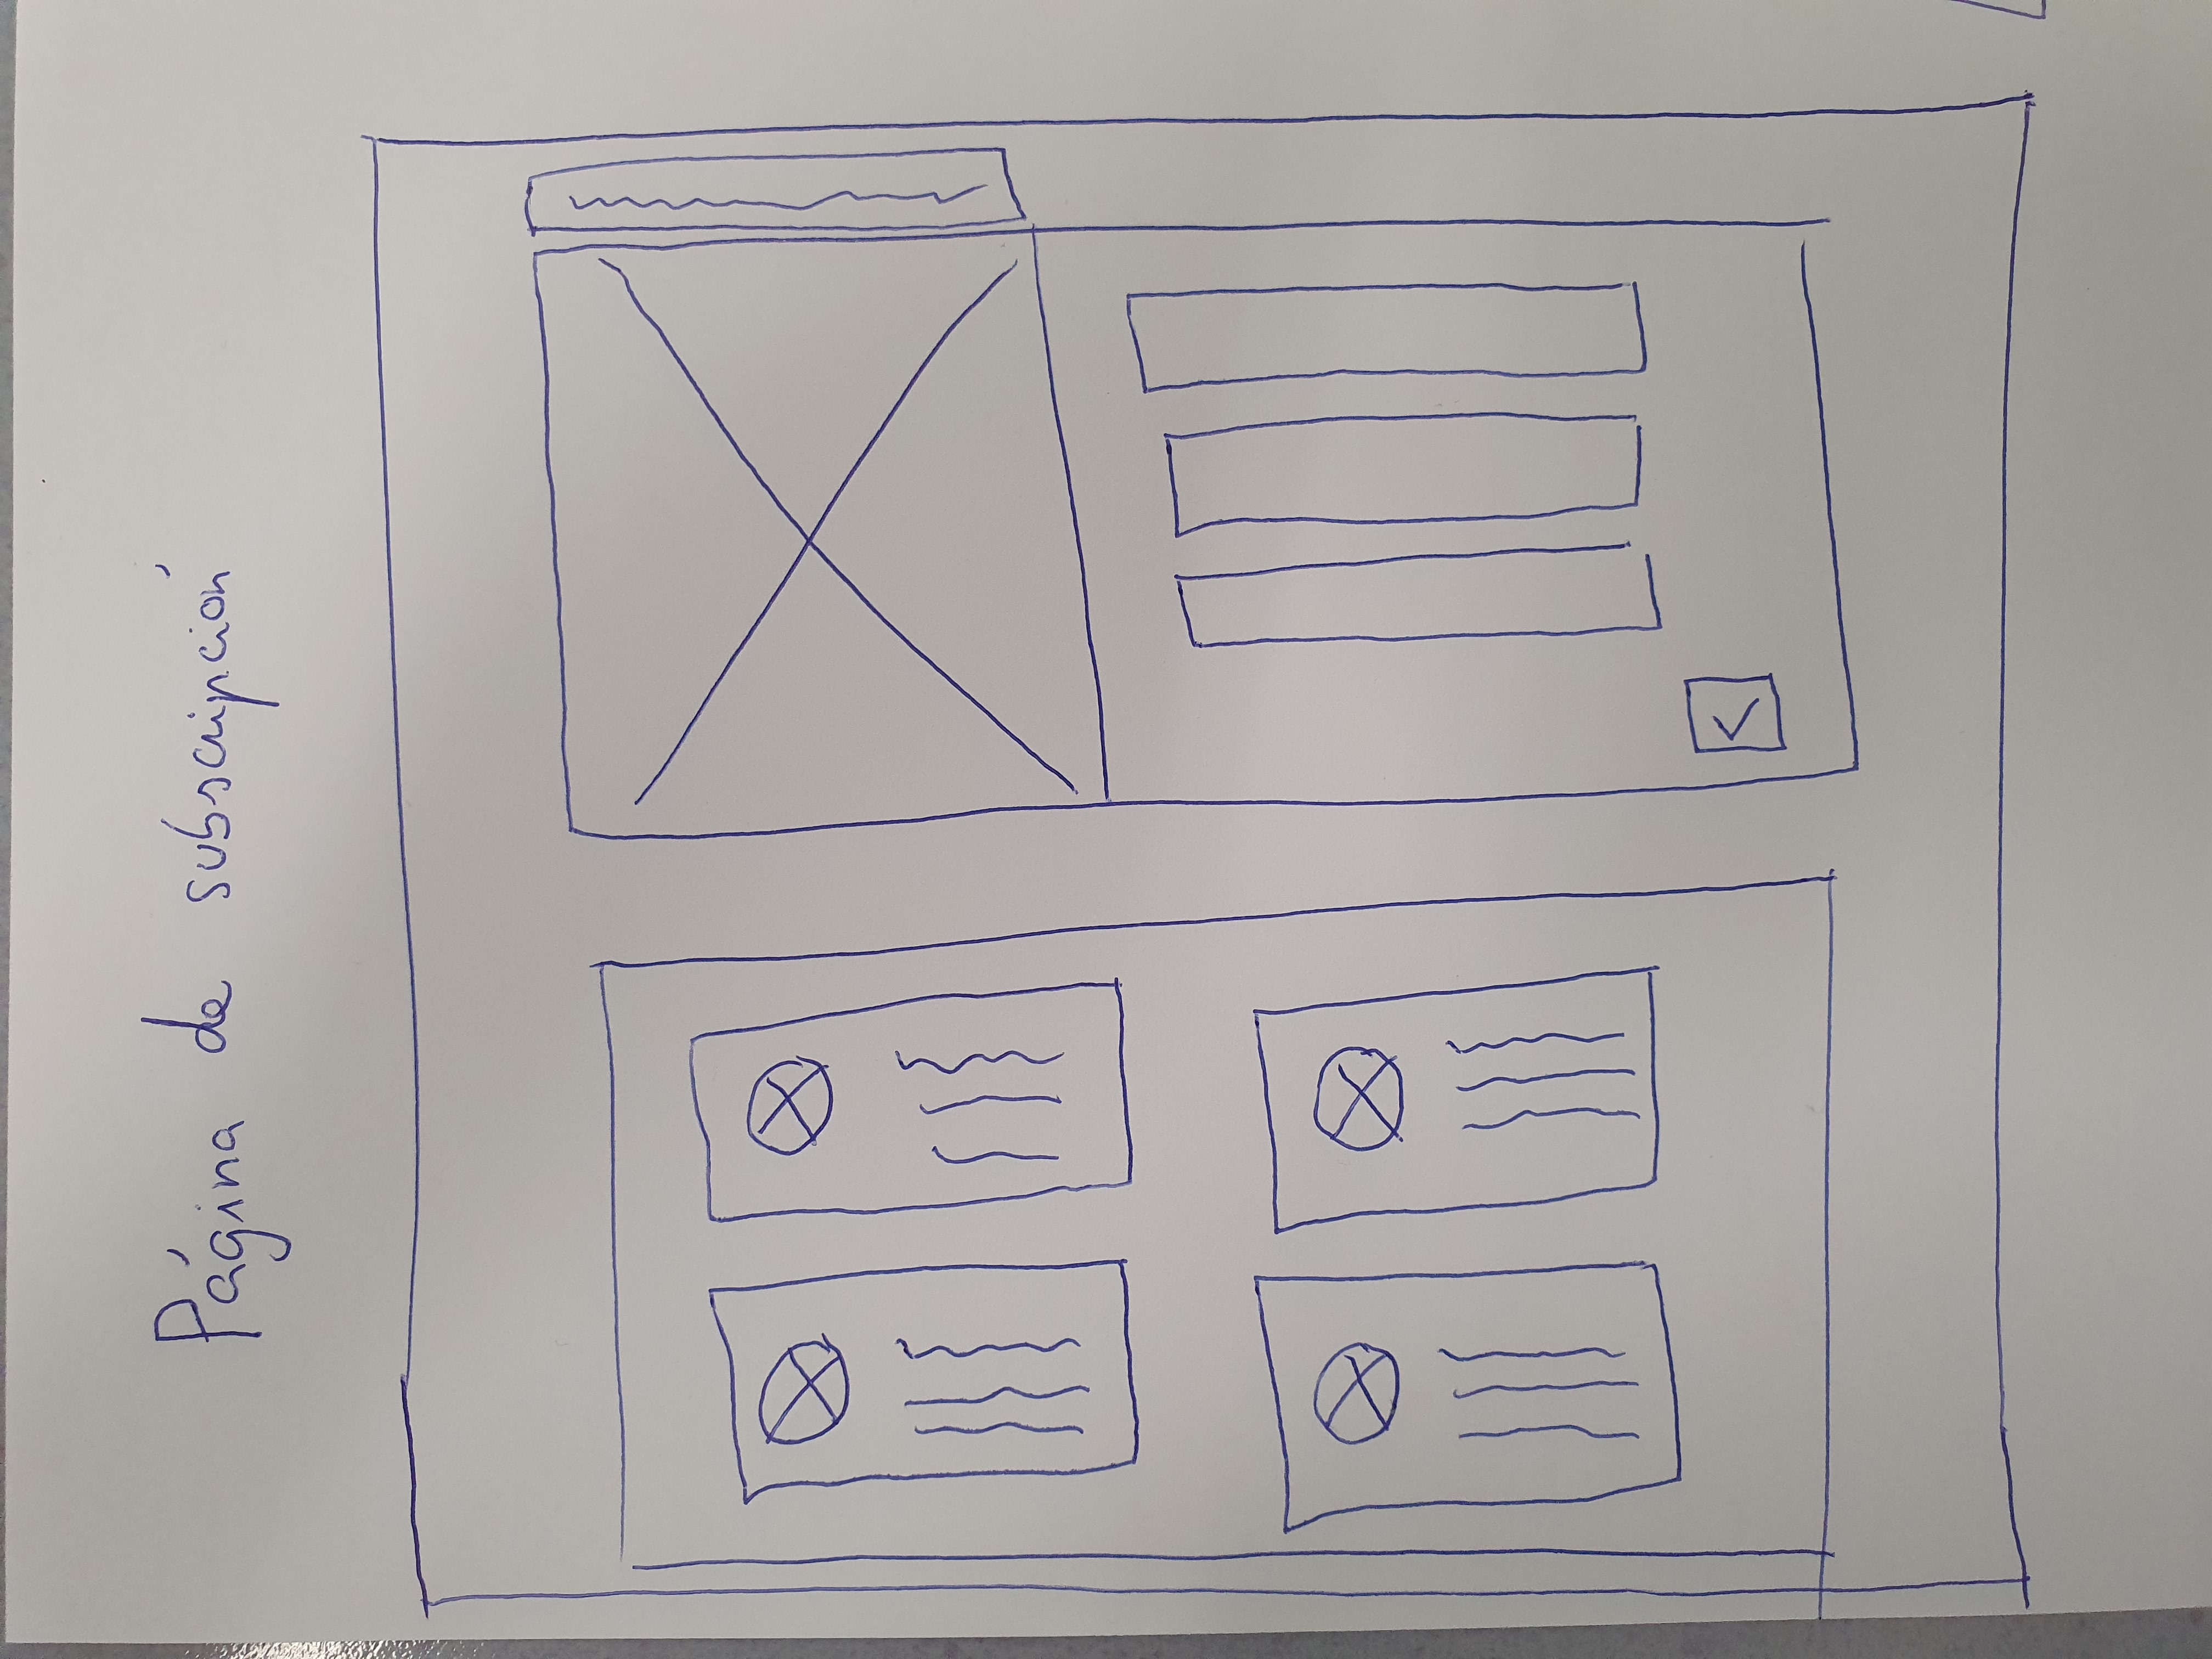 Página de subscripción